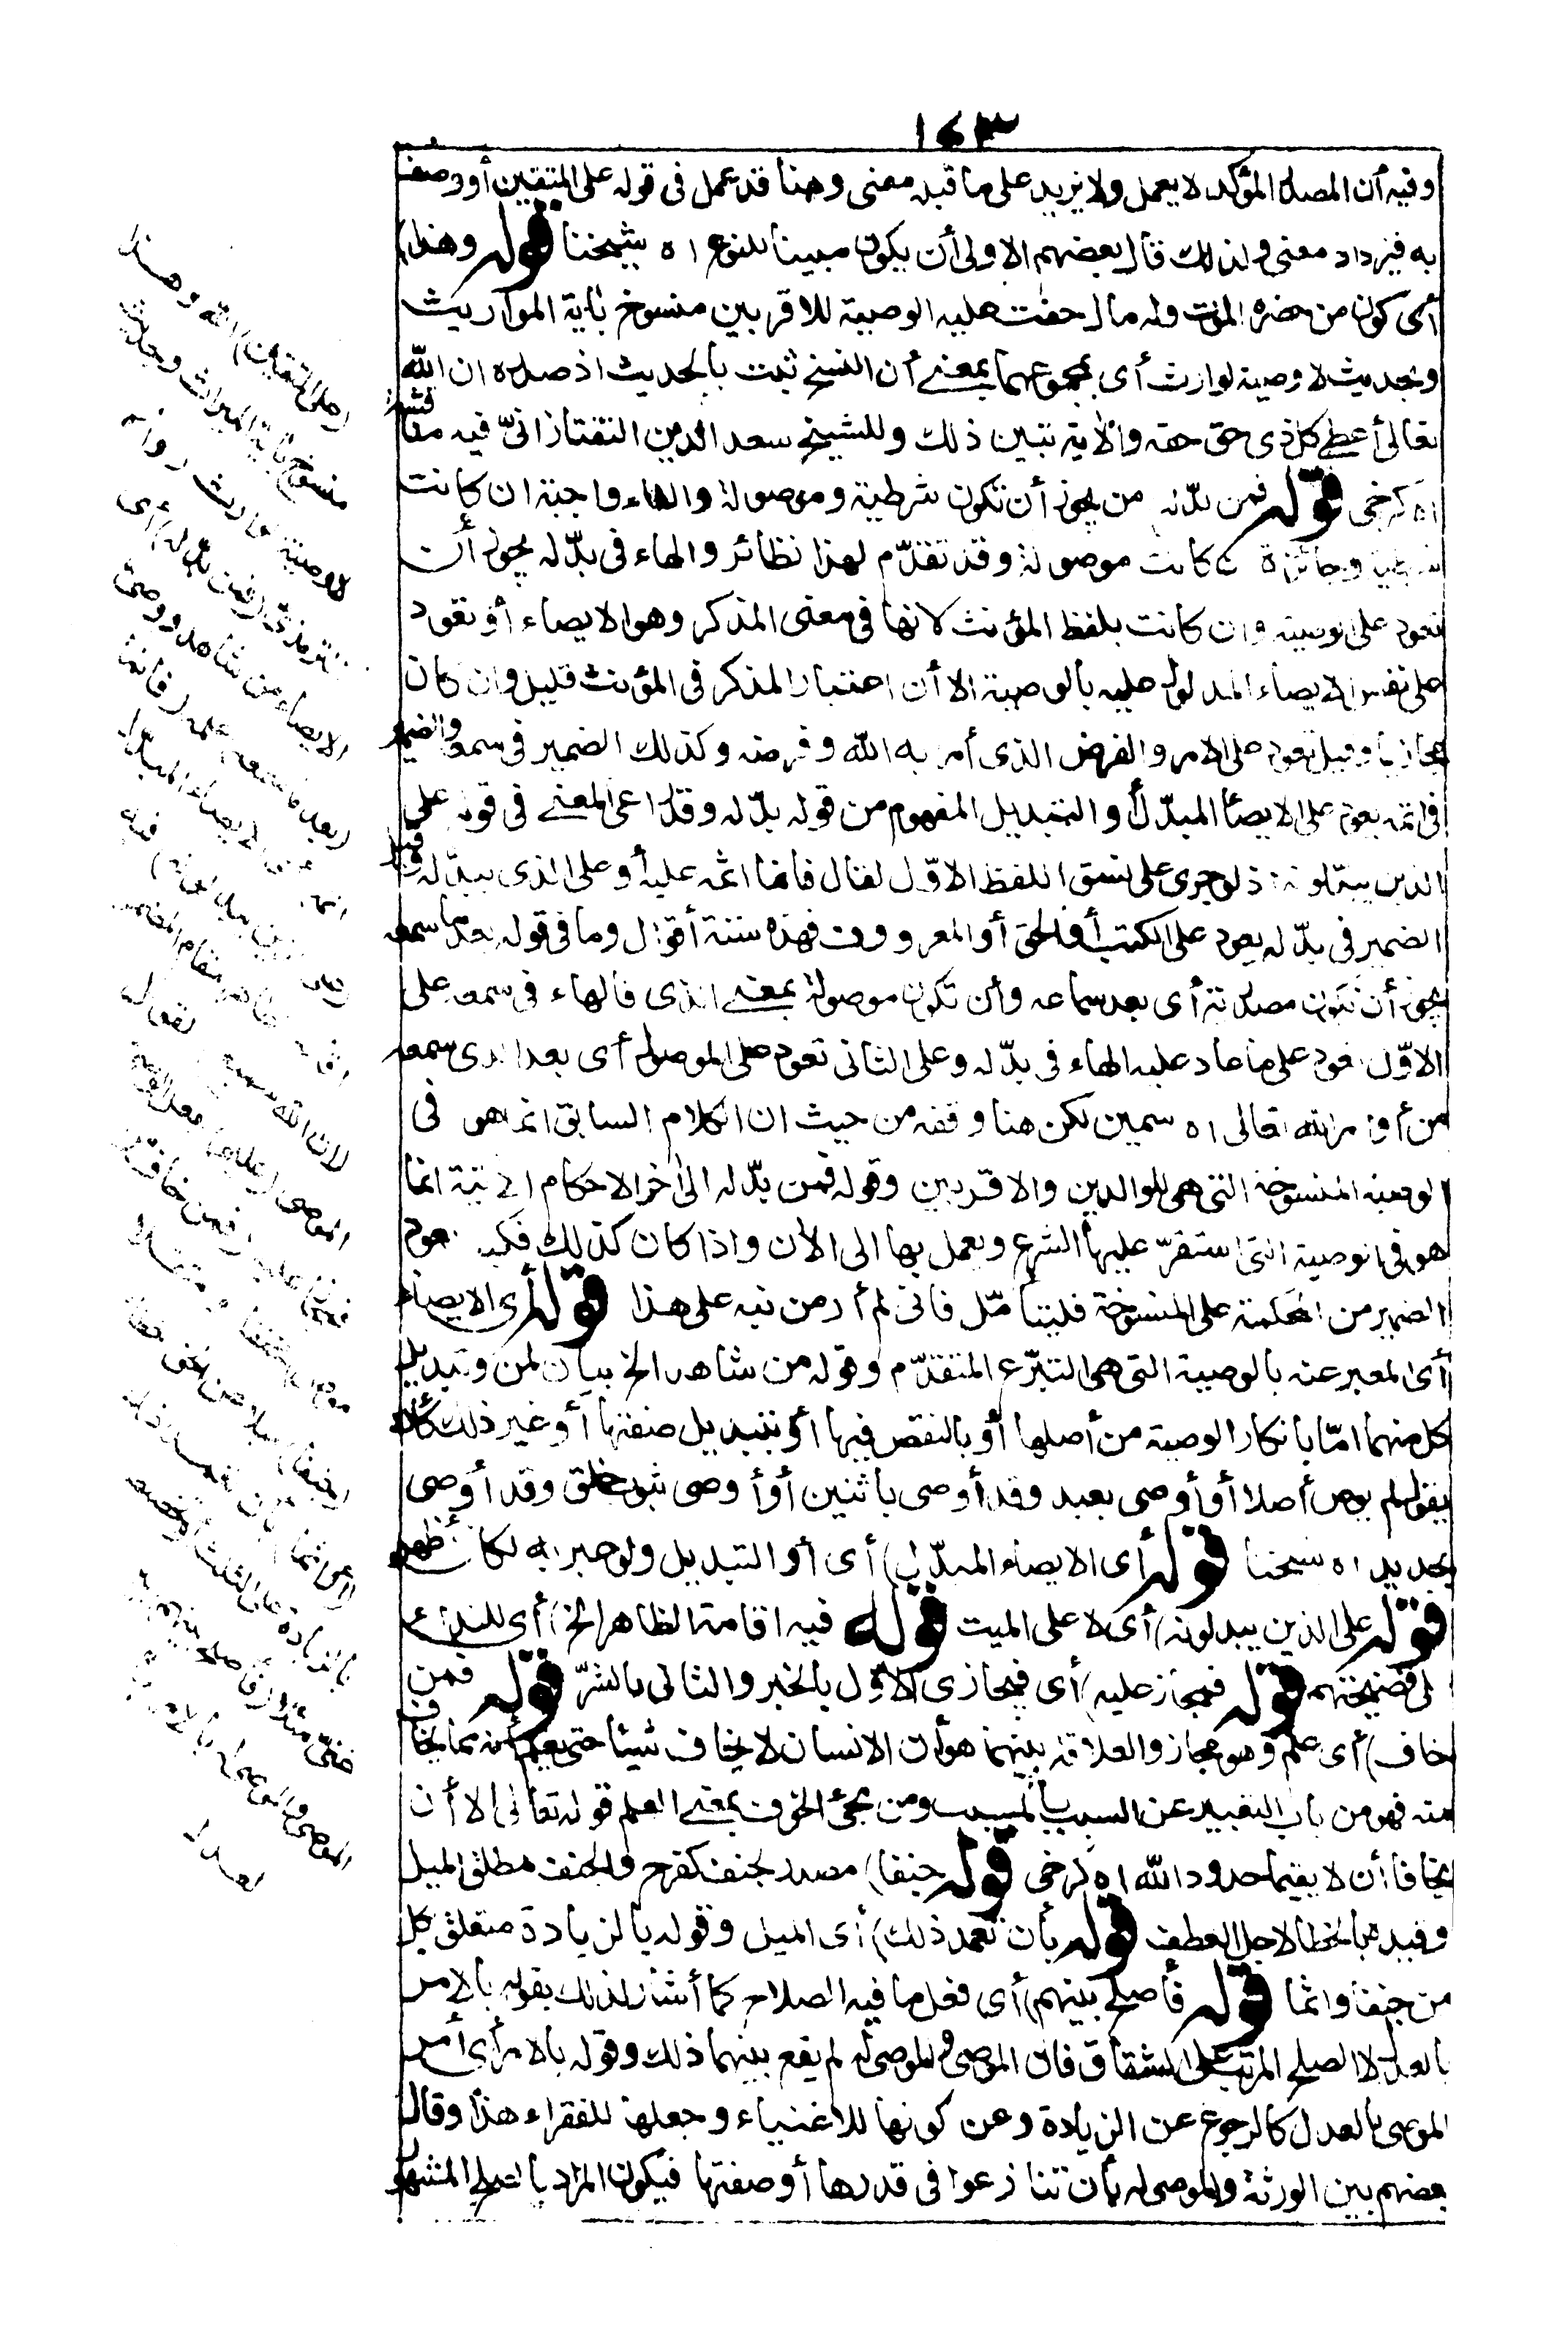 ١٤٣
وفيه أن المصدر المؤكد لا يعمل ولا يزيد على ما قبله معنى وهنا قد عمل فى قوله على المتقين أو وصف
به فيزداد معنى ولذلك قال بعضهم الاولى أن يكون مبينا للنوع اه شيخنا قوله وهذا)
أى كون من حضره الموت وله مال حقت عليه الوصية للاقربين منسوخ بآية المواريث
وبحديث لا وصية لوارث أى بمجموعهما بمعنى أن النسخ ثبت بالحديث اذ صدره ان الله
تعالى أعطى كل ذى حق حقه والآية تبين ذلك وللشيخ سعد الدين التفتازانىّ فيه مناقشة
اه كرخى قوله فمن بدّله من يجوز أن تكون شرطية وموصولة والفاء واجبة ان كانت
شرطية وجائزة ان كانت موصولة وقد تقدّم لهذا نظائر والهاء فى بدّله يجوز أن
تعود على الوصية وان كانت بلفظ المؤنث لانها فى معنى المذكر وهو الايصاء أو تعود
على نفس الايصاء المدلول عليه بالوصية الا أن اعتبار المذكر فى المؤنث قليل وان كان
مجازيا وقيل تعود على الامر والفرض الذى أمر به الله وفرضه وكذلك الضمير فى سمعه والضمير
فى اثمه يعود على الايصاء المبدّل أو التبديل المفهوم من قوله بدّله وقد راعى المعنى فى قوله على
الذين يبدّلونه اذ لو جرى على نسق اللفظ الاوّل لقال فانما اثمه عليه أو على الذى يبدّله وقيل
الضمير فى بدّله يعود على الكتب أو الحق أو المعروف فهذه ستة أقوال وما فى قوله بعد ما سمعه
يجوز أن تكون مصدرية أى بعد سماعه وأن تكون موصولة بمعنى الذى فالهاء فى سمعه على
الاوّل تعود على ما عاد عليه الهاء فى بدّله وعلى الثانى تعود على الموصول أى بعد الذى سمعه
من أوامر الله تعالى اه سمين لكن هنا وقفة من حيث ان الكلام السابق انما هو فى
الوصية المنسوخة التى هى للوالدين والاقربين وقوله فمن بدّله الى آخر الاحكام الآتية انما
هو فى الوصية التى استقرّ عليها الشرع ويعمل بها الى الآن واذا كان كذلك فكيف يعود
الضمير من المحكمة على المنسوخة فليتأمّل فانى لم أر من نبه على هذا قوله أى الايصاء
أى المعبر عنه بالوصية التى هى التبرّع المتقدّم وقوله من شاهد الخ بيان لمن وتبديل
كل منهما امّا بانكار الوصية من أصلها أو بالنقص فيها أو بتبديل صفتها أو غير ذلك كأن
يقول لم يوص أصلا أو أوصى بعبد وقد أوصى باثنين أو أوصى بثوب خلق وقد أوصى
بجديد اه شيخنا قوله أى الايصاء المبدّل) أى أو التبديل ولو عبر به لكان أظهر
قوله على الذين يبدلونه) أى لا على الميت قوله فيه اقامة الظاهر الخ) أى للنداء
على فضيحتهم قوله فمجاز عليه) أى فيجازى الاوّل بالخير والثانى بالشرّ قوله فمن
خاف) أى علم وهو مجاز والعلاقة بينهما هو أن الانسان لا يخاف شيئا حتى يعلم أنه مما يخاف
منه فهو من باب التعبير عن السبب بالمسبب ومن مجىء الخوف بمعنى العلم قوله تعالى الا أن
يخافا أن لا يقيما حدود الله اه كرخى قوله جنفا) مصدر لجنف كفرح والجنف مطلق الميل
وقيده بالخطا لاجل العطف قوله بأن تعمد ذلك) أى الميل وقوله بالزيادة متعلق بكل
من جنفا واثما قوله فأصلح بينهم) أى فعل ما فيه الصلاح كما أشار لذلك بقوله بالامر
بالعدل لا الصلح المرتب على الشقاق فان الموصى والموصى له لم يقع بينهما ذلك وقوله بالامر أى أمر
الموصى بالعدل كالرجوع عن الزيادة وعن كونها للاغنياء وجعلها للفقراء هذا وقال
بعضهم بين الورثة والموصى له بأن تنازعوا فى قدرها أو صفتها فيكون المراد بالصلح المشهور
(على المتقين) الله وهذا
منسوخ بآية الميراث وبحديث
لا وصية لوارث رواه
الترمذى (فمن بدله) أى
الايصاء من شاهد ووصى
(بعد ما سمعه) علمه (فانما
اثمه) أى الايصاء المبدل
(على الذين يبدلونه) فيه
اقامة الظاهر مقام المضمر
لان الله سميع) لقول
الموصى (عليم) بفعل الوصى
فمجاز عليه (فمن خاف من
موص) مخففا ومثقلا
(جنفا) ميلا عن الحق خطأ
(أو اثما) بأن تعمد ذلك
بالزيادة على الثلث أو تخصيص
غنى مثلا (فأصلح بينهم) بين
الموصى والموصى له بالامر
بالعدل